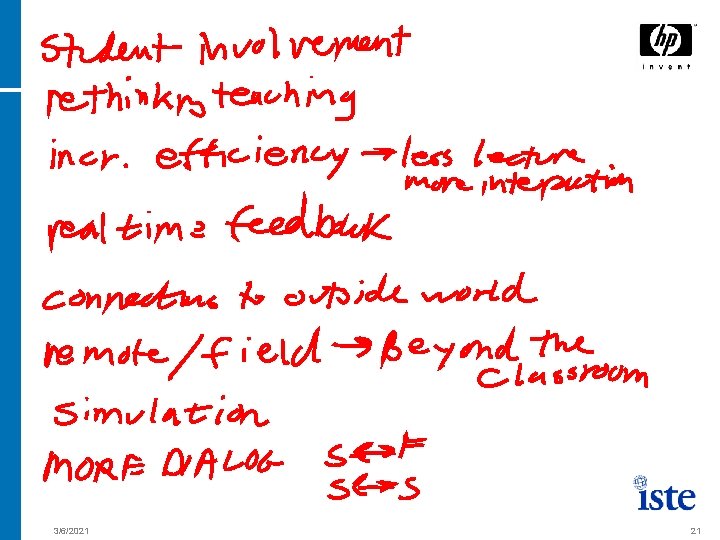 Student involvement
hp
invent
rethinking teaching
incr. efficiency → less lecture
more interaction
real time feedback
connections to outside world
remote/field → Beyond the
classroom
simulation
MORE DIALOG S↔F
S↔S
iste
3/6/2021
21